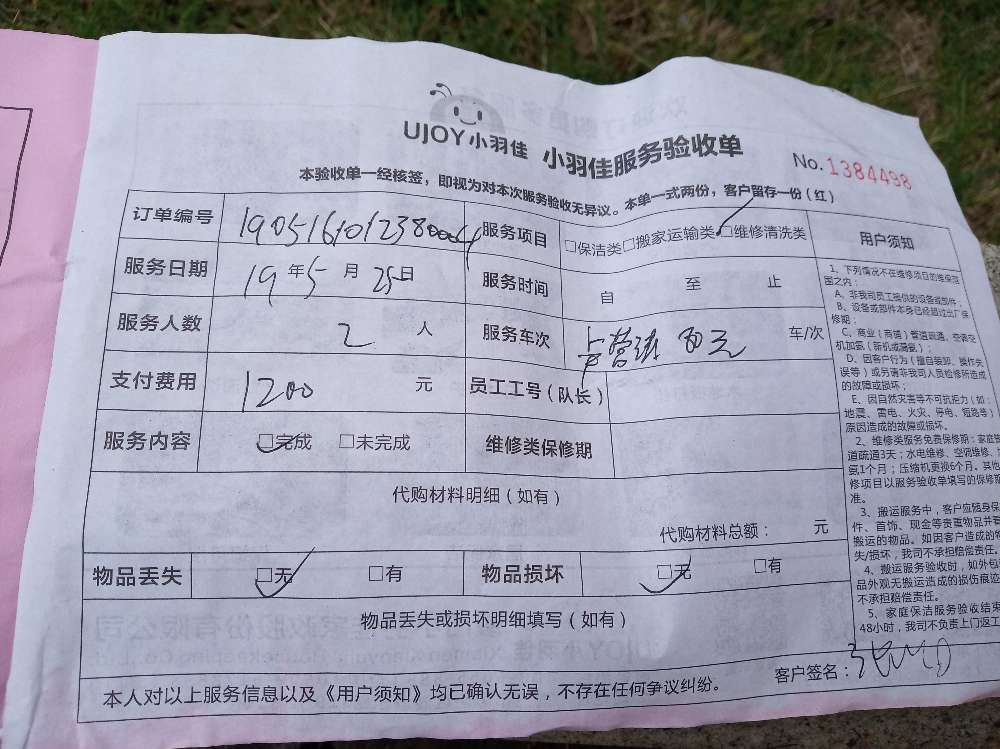 UJOY小羽佳 小羽佳服务验收单
No.1384498
本验收单一经核签，即视为对本次服务验收无异议。本单一式两份，客户留存一份（红）
订单编号 190516101238 服务项目 □保洁类□搬家运输类□维修清洗类
服务日期 19年5月25日 服务时间 自 至 止
服务人数 2人 服务车次 车/次
支付费用 1200元 员工工号（队长）
服务内容 □完成 □未完成 维修类保修期
代购材料明细（如有）
代购材料总额： 元
物品丢失 □无 □有 物品损坏 □无 □有
物品丢失或损坏明细填写（如有）
本人对以上服务信息以及《用户须知》均已确认无误，不存在任何争议纠纷。
客户签名：
用户须知
1、下列情况不在维修项目的维保范
围之内：
A、非我司员工提供的设备或部件；
B、设备或部件本身已经超过出厂保
修期；
C、商业（商铺）管道疏通、空调空
机加氨（新机或漏氨）；
D、因客户行为（擅自装卸、操作失
误等）或另请非我司人员检修所造成
的故障或损坏；
E、因自然灾害等不可抗拒力（如：
地震、雷电、火灾、停电、短路等）
原因造成的故障或损坏。
2、维修类服务免费保修期：家庭管
道疏通3天；水电维修、空调维修、
氨1个月；压缩机更换6个月。其他
修项目以服务验收单填写的保修期
准。
3、搬运服务中，客户应随身保
件、首饰、现金等贵重物品并
搬运的物品。如因客户造成的物
失/损坏，我司不承担赔偿责任。
4、搬运服务验收时，如外包
品外观无搬运造成的损伤痕迹
不承担赔偿责任。
5、家庭保洁服务验收结束
48小时，我司不负责上门返工